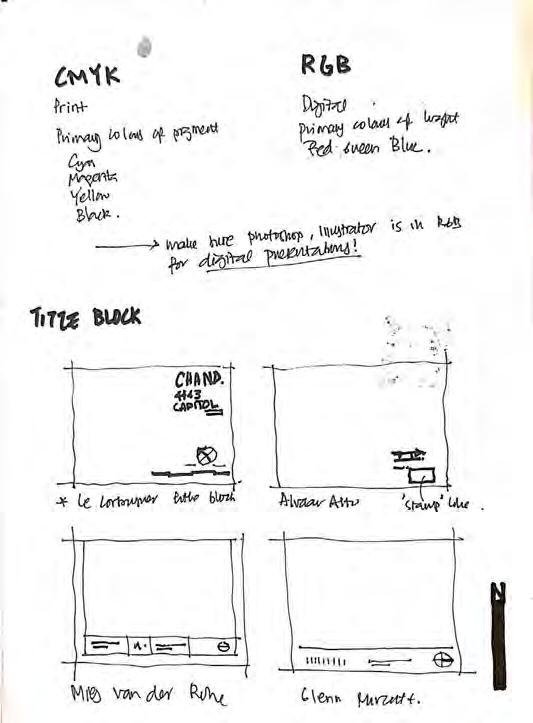 CMYK
Print
Primary colours of pigment
Cyan
Magenta
Yellow
Black.
RGB
Digital
Primary colours of
Red Green Blue.
make sure photoshop, Illustrator is in RGB
for digital presentations!
TITLE BLOCK
CHAND.
4143
CAPITOL
* Le Corbusier title block
Alvaar Alto
'stamp' like.
N.
Mies van der Rohe
Glenn Murcutt.
N